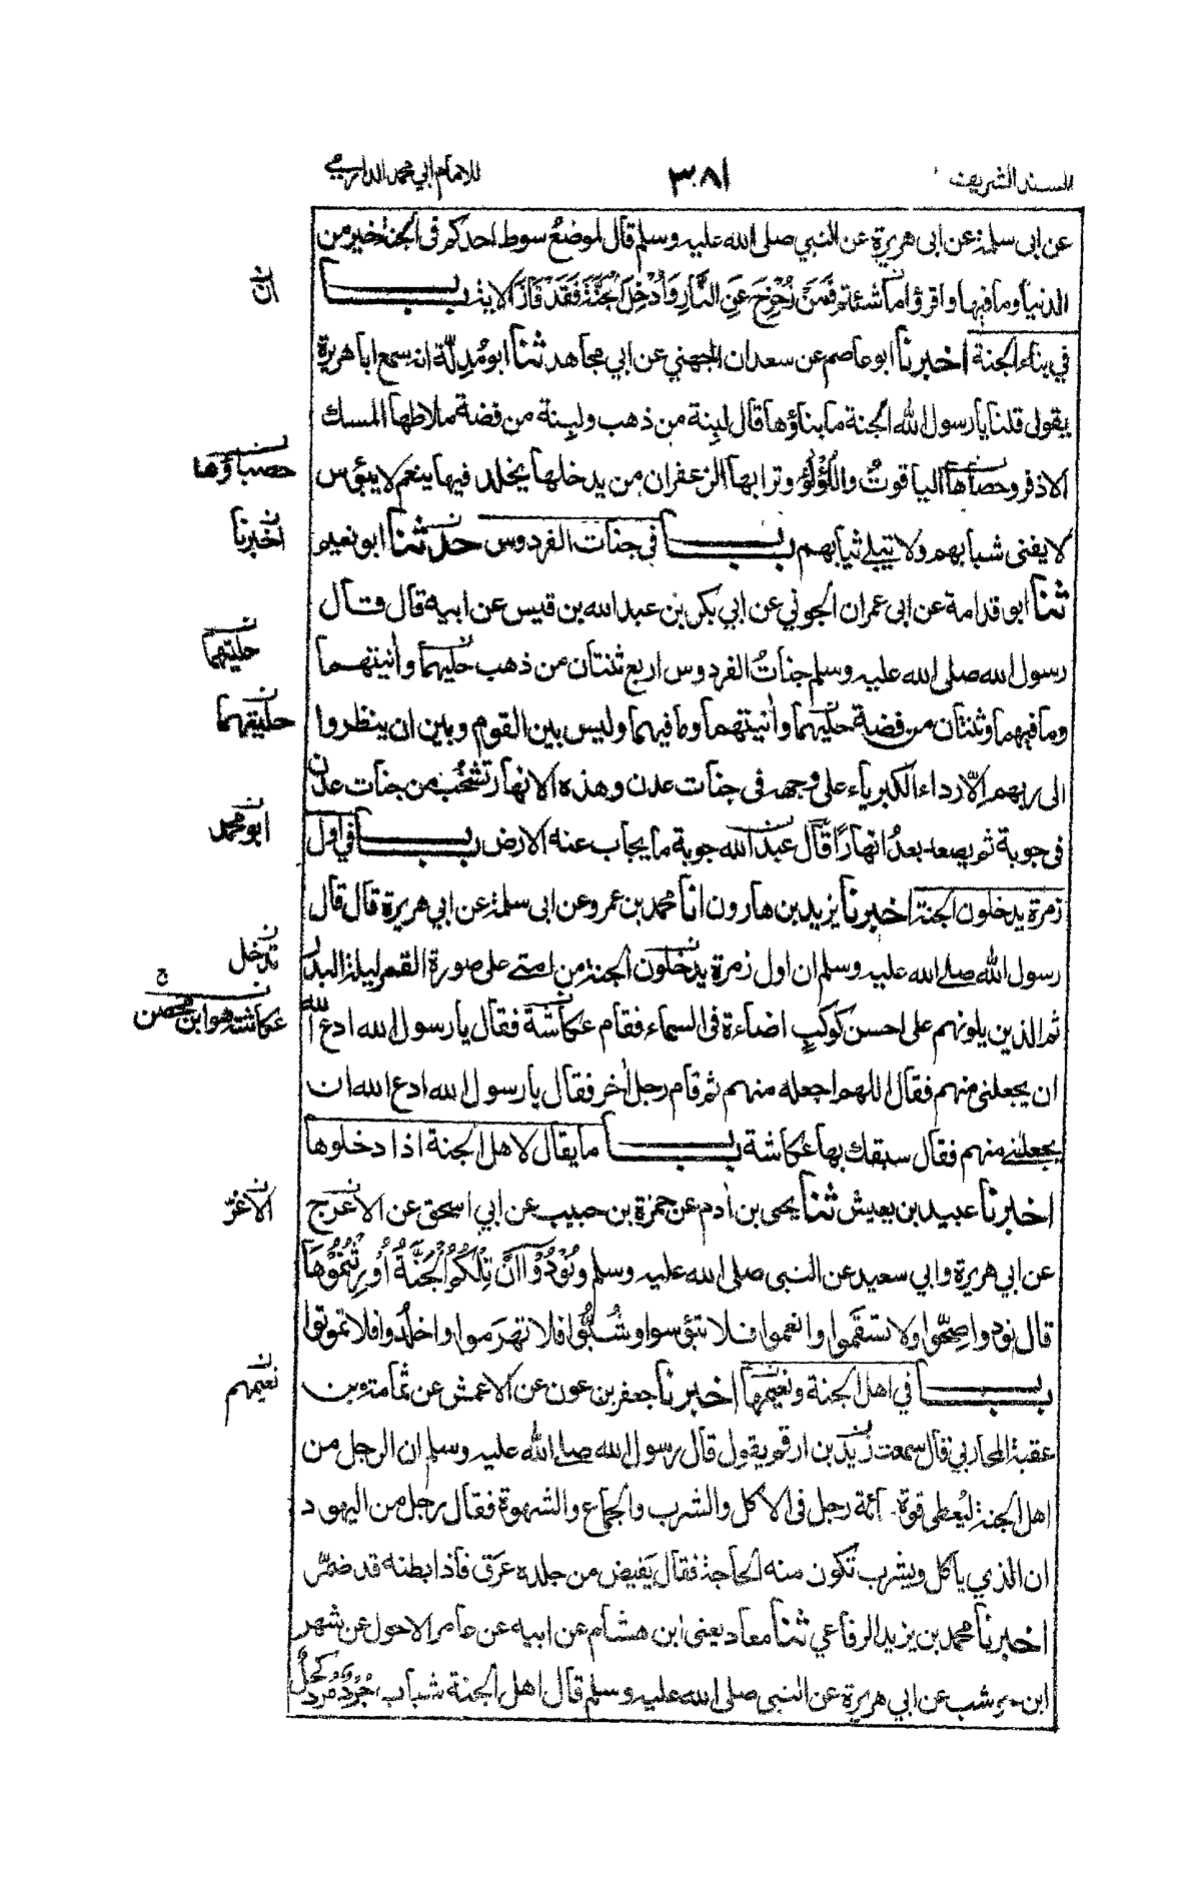 المسند الشريف
٣٠٨
للامام ابي محمد الدارمي
عن ابى سلمة عن ابى هريرة عن النبي صلى الله عليه وسلم قال لموضع سوط احدكم فى الجنة خير من
الدنيا وما فيها واقرؤا ما شئتم فَمَنْ زُحْزِحَ عَنِ النَّارِ وَأُدْخِلَ الْجَنَّةَ فَقَدْ فَازَ الاية باب
ان
في بناء الجنة اخبرنا ابو عاصم عن سعدان الجهني عن ابي مجاهد ثنا ابو مُدِلّة انه سمع ابا هريرة
يقول قلنا يا رسول الله الجنة ما بناؤها قال لبنة من ذهب ولبنة من فضة ملاطها المسك
الاذفر وحصاها الياقوتُ واللؤلؤ وترابها الزعفران من يدخلها يخلد فيها ينعم لا يبؤس
حصباؤها
لا يفنى شبابهم ولا تبلى ثيابهم باب في جنات الفردوس حدثنا ابو نعيم
اخبرنا
ثنا ابو قدامة عن ابى عمران الجوني عن ابي بكر بن عبد الله بن قيس عن ابيه قال قال
رسول الله صلى الله عليه وسلم جناتُ الفردوس اربع ثنتان من ذهب حليهما وانيتهما
حليتهما
وما فيهما وثنتان من فضة حليهما وانيتهما وما فيهما وليس بين القوم وبين ان ينظروا
حليتهما
الى ربهم الّا رداء الكبرياء على وجهه فى جنات عدن وهذه الانهار تشخُب من جنات عدن
فى جوبة ثم يصعد بعدُ انهارًا قال عبد الله جوبة ما يجاب عنه الارض باب في اول
ابو محمد
زمرة يدخلون الجنة اخبرنا يزيد بن هارون انا محمد بن عمرو عن ابى سلمة عن ابي هريرة قال قال
رسول الله صلى الله عليه وسلم ان اول زمرة يدخلون الجنة من امتى على صورة القمر ليلة البدر
تدخل
ثم الذين يلونهم على احسن كوكبٍ اضاءة فى السماء فقام عكاشة فقال يا رسول الله ادع الله
عكاشة هو ابن محصن
ان يجعلنى منهم فقال اللهم اجعله منهم ثم قام رجل اخر فقال يا رسول الله ادع الله ان
يجعلنى منهم فقال سبقك بها عكاشة باب ما يقال لاهل الجنة اذا دخلوها
اخبرنا عبيد بن يعيش ثنا يحيى بن ادم عن حمزة بن حبيب عن ابي اسحق عن الاعرج
الاغرّ
عن ابي هريرة وابي سعيد عن النبى صلى الله عليه وسلم وَنُوْدُوْا اَنْ تِلْكُمُ الْجَنَّةُ اُوْرِثْتُمُوْهَا
قال نودوا صِحّوا ولا تسقموا وانعموا فلا تبؤسوا وشُبّوا فلا تهرموا واخلُدوا فلا تموتوا
باب في اهل الجنة ونعيمها اخبرنا جعفر بن عون عن الاعمش عن ثمامة بن
نعيمهم
عقبة المحاربي قال سمعت زيد بن ارقم يقول قال رسول الله صلى الله عليه وسلم ان الرجل من
اهل الجنة ليُعطى قوة مائة رجل فى الاكل والشرب والجماع والشهوة فقال رجل من اليهود
ان الذي ياكل ويشرب تكون منه الحاجة فقال يَفيض من جلده عرَق فاذا بطنه قد ضمُر
اخبرنا محمد بن يزيد الرفاعي ثنا معاذ يعنى ابن هشام عن ابيه عن عامر الاحول عن شهر
ابن حوشب عن ابي هريرة عن النبى صلى الله عليه وسلم قال اهل الجنة شباب جُرْدٌ مُرْدٌ كحلٌ